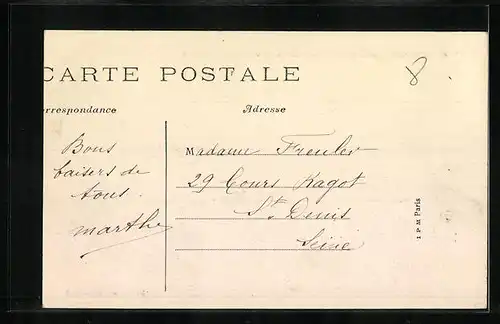 CARTE POSTALE
8
orrespondance
Adresse
Bons
baisers de
tous.
marthe
Madame Freuler
29 Cours Ragot
St. Denis
Seine
1 P M Paris